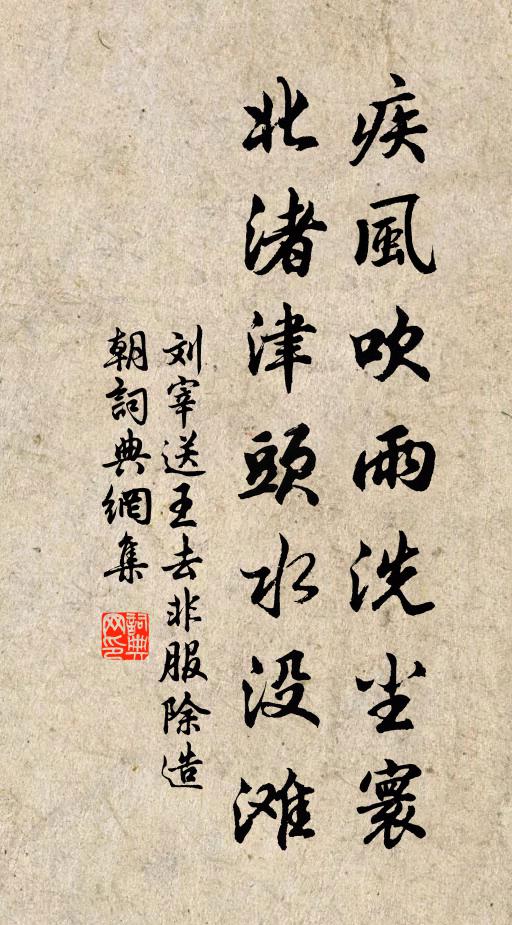 疾風吹雨洗尘寰
北渚津頭水没滩
刘宰送王去非服除造
朝詞典網集
詞典网印